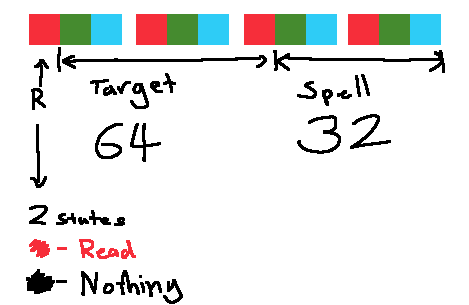 R
Target
Spell
64
32
2 states
- Read
- Nothing